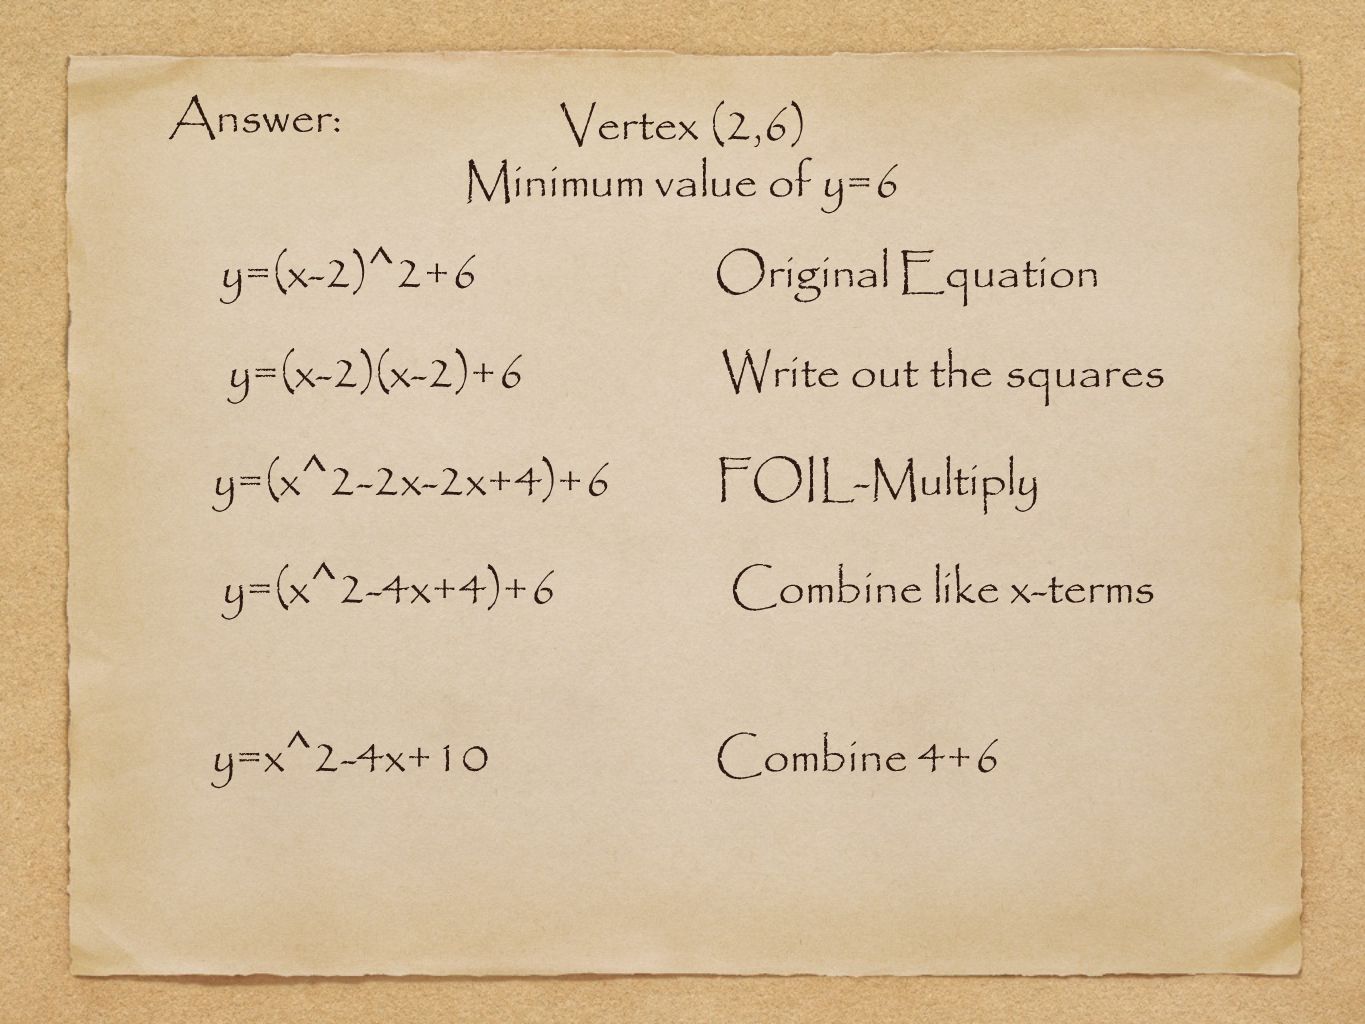 Answer:
Vertex (2,6)
Minimum value of y=6
y=(x-2)^2+6 Original Equation
y=(x-2)(x-2)+6 Write out the squares
y=(x^2-2x-2x+4)+6 FOIL-Multiply
y=(x^2-4x+4)+6 Combine like x-terms
y=x^2-4x+10 Combine 4+6